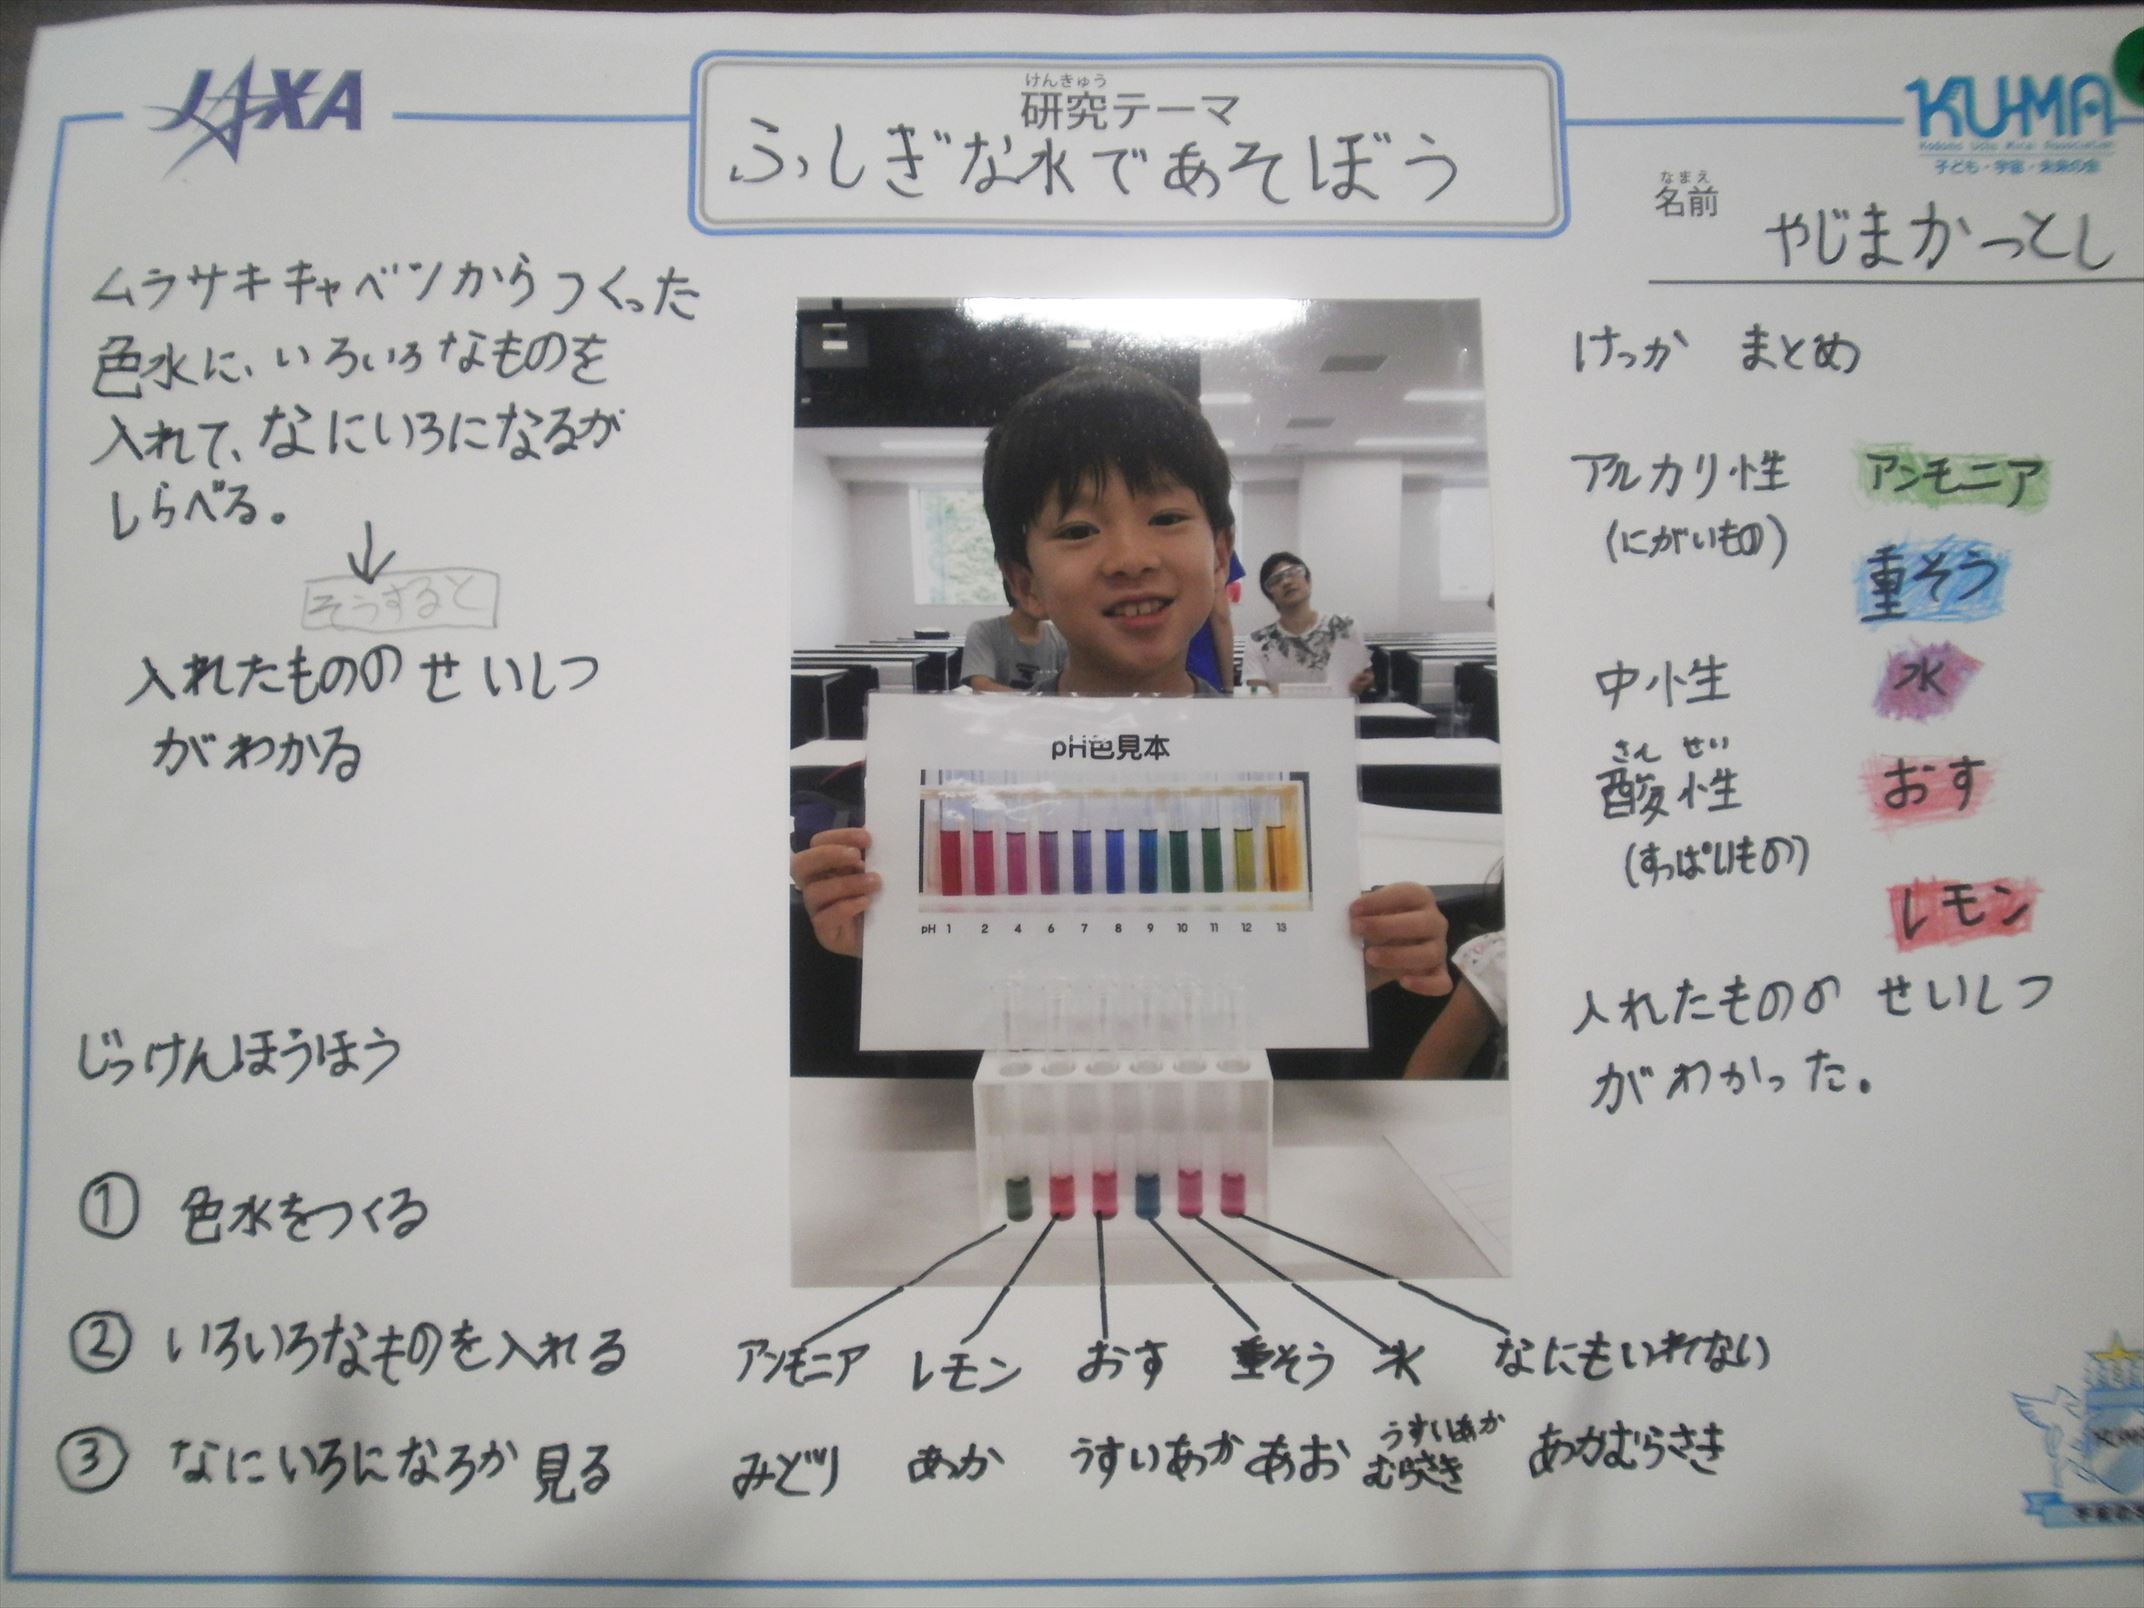 JAXA
けんきゅう
研究テーマ
ふしぎな水であそぼう
KU-MA
子ども・宇宙・未来の会
なまえ
名前
やじまかつとし
ムラサキキャベツからつくった
色水に、いろいろなものを
入れて、なにいろになるが
しらべる。
↓
そうすると
入れたもののせいしつ
がわかる
じっけんほうほう
① 色水をつくる
② いろいろなものを入れる
③ なにいろになろか見る
pH色見本
pH 1 2 4 6 7 8 9 10 11 12 13
アンモニア レモン おす 重そう 水 なにもいれない
みどり あか うすいあか あお うすいあかむらさき あかむらさき
けっか まとめ
アルカリ性 アンモニア
(にがいもの)
重そう
中小生 水
さんせい
酸性 おす
(すっぱいもの)
レモン
入れたもののせいしつ
がわかった。